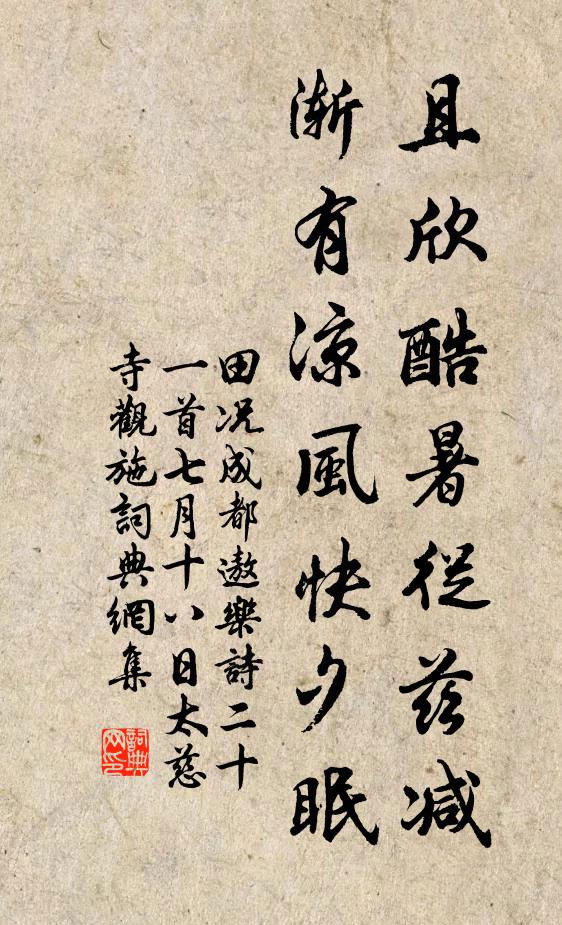 且欣酷暑從茲減
漸有涼風快夕眠
田况成都遨樂詩二十
一首七月十八日太慈
寺觀施詞典網集
詞典網印